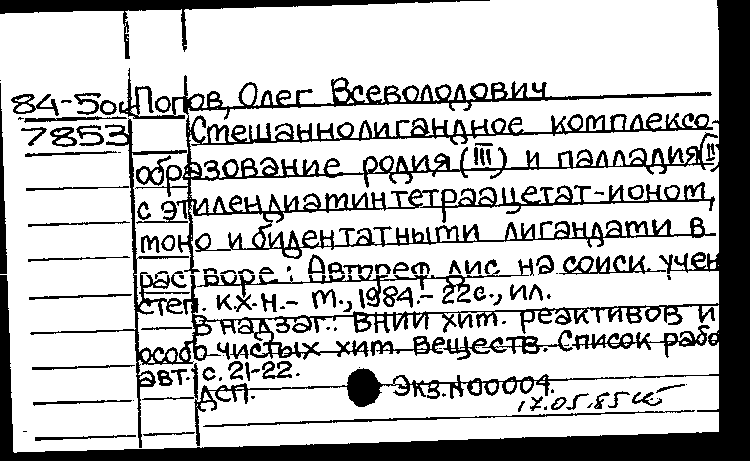 84-5ос Попов, Олег Всеволодович
7853 Смешаннолигандное комплексо-
образование родия (III) и палладия (II)
с этилендиаминтетраацетат-ионом,
моно и бидентатными лигандами в
растворе: Автореф. дис. на соиск. учен
степ. к.х.н.- М., 1984.- 22с., ил.
В надзаг.: ВНИИ хим. реактивов и
особо чистых хим. веществ. Список рабо
авт.: с. 21-22.
ДСП. Экз. N00004.
17.05.85